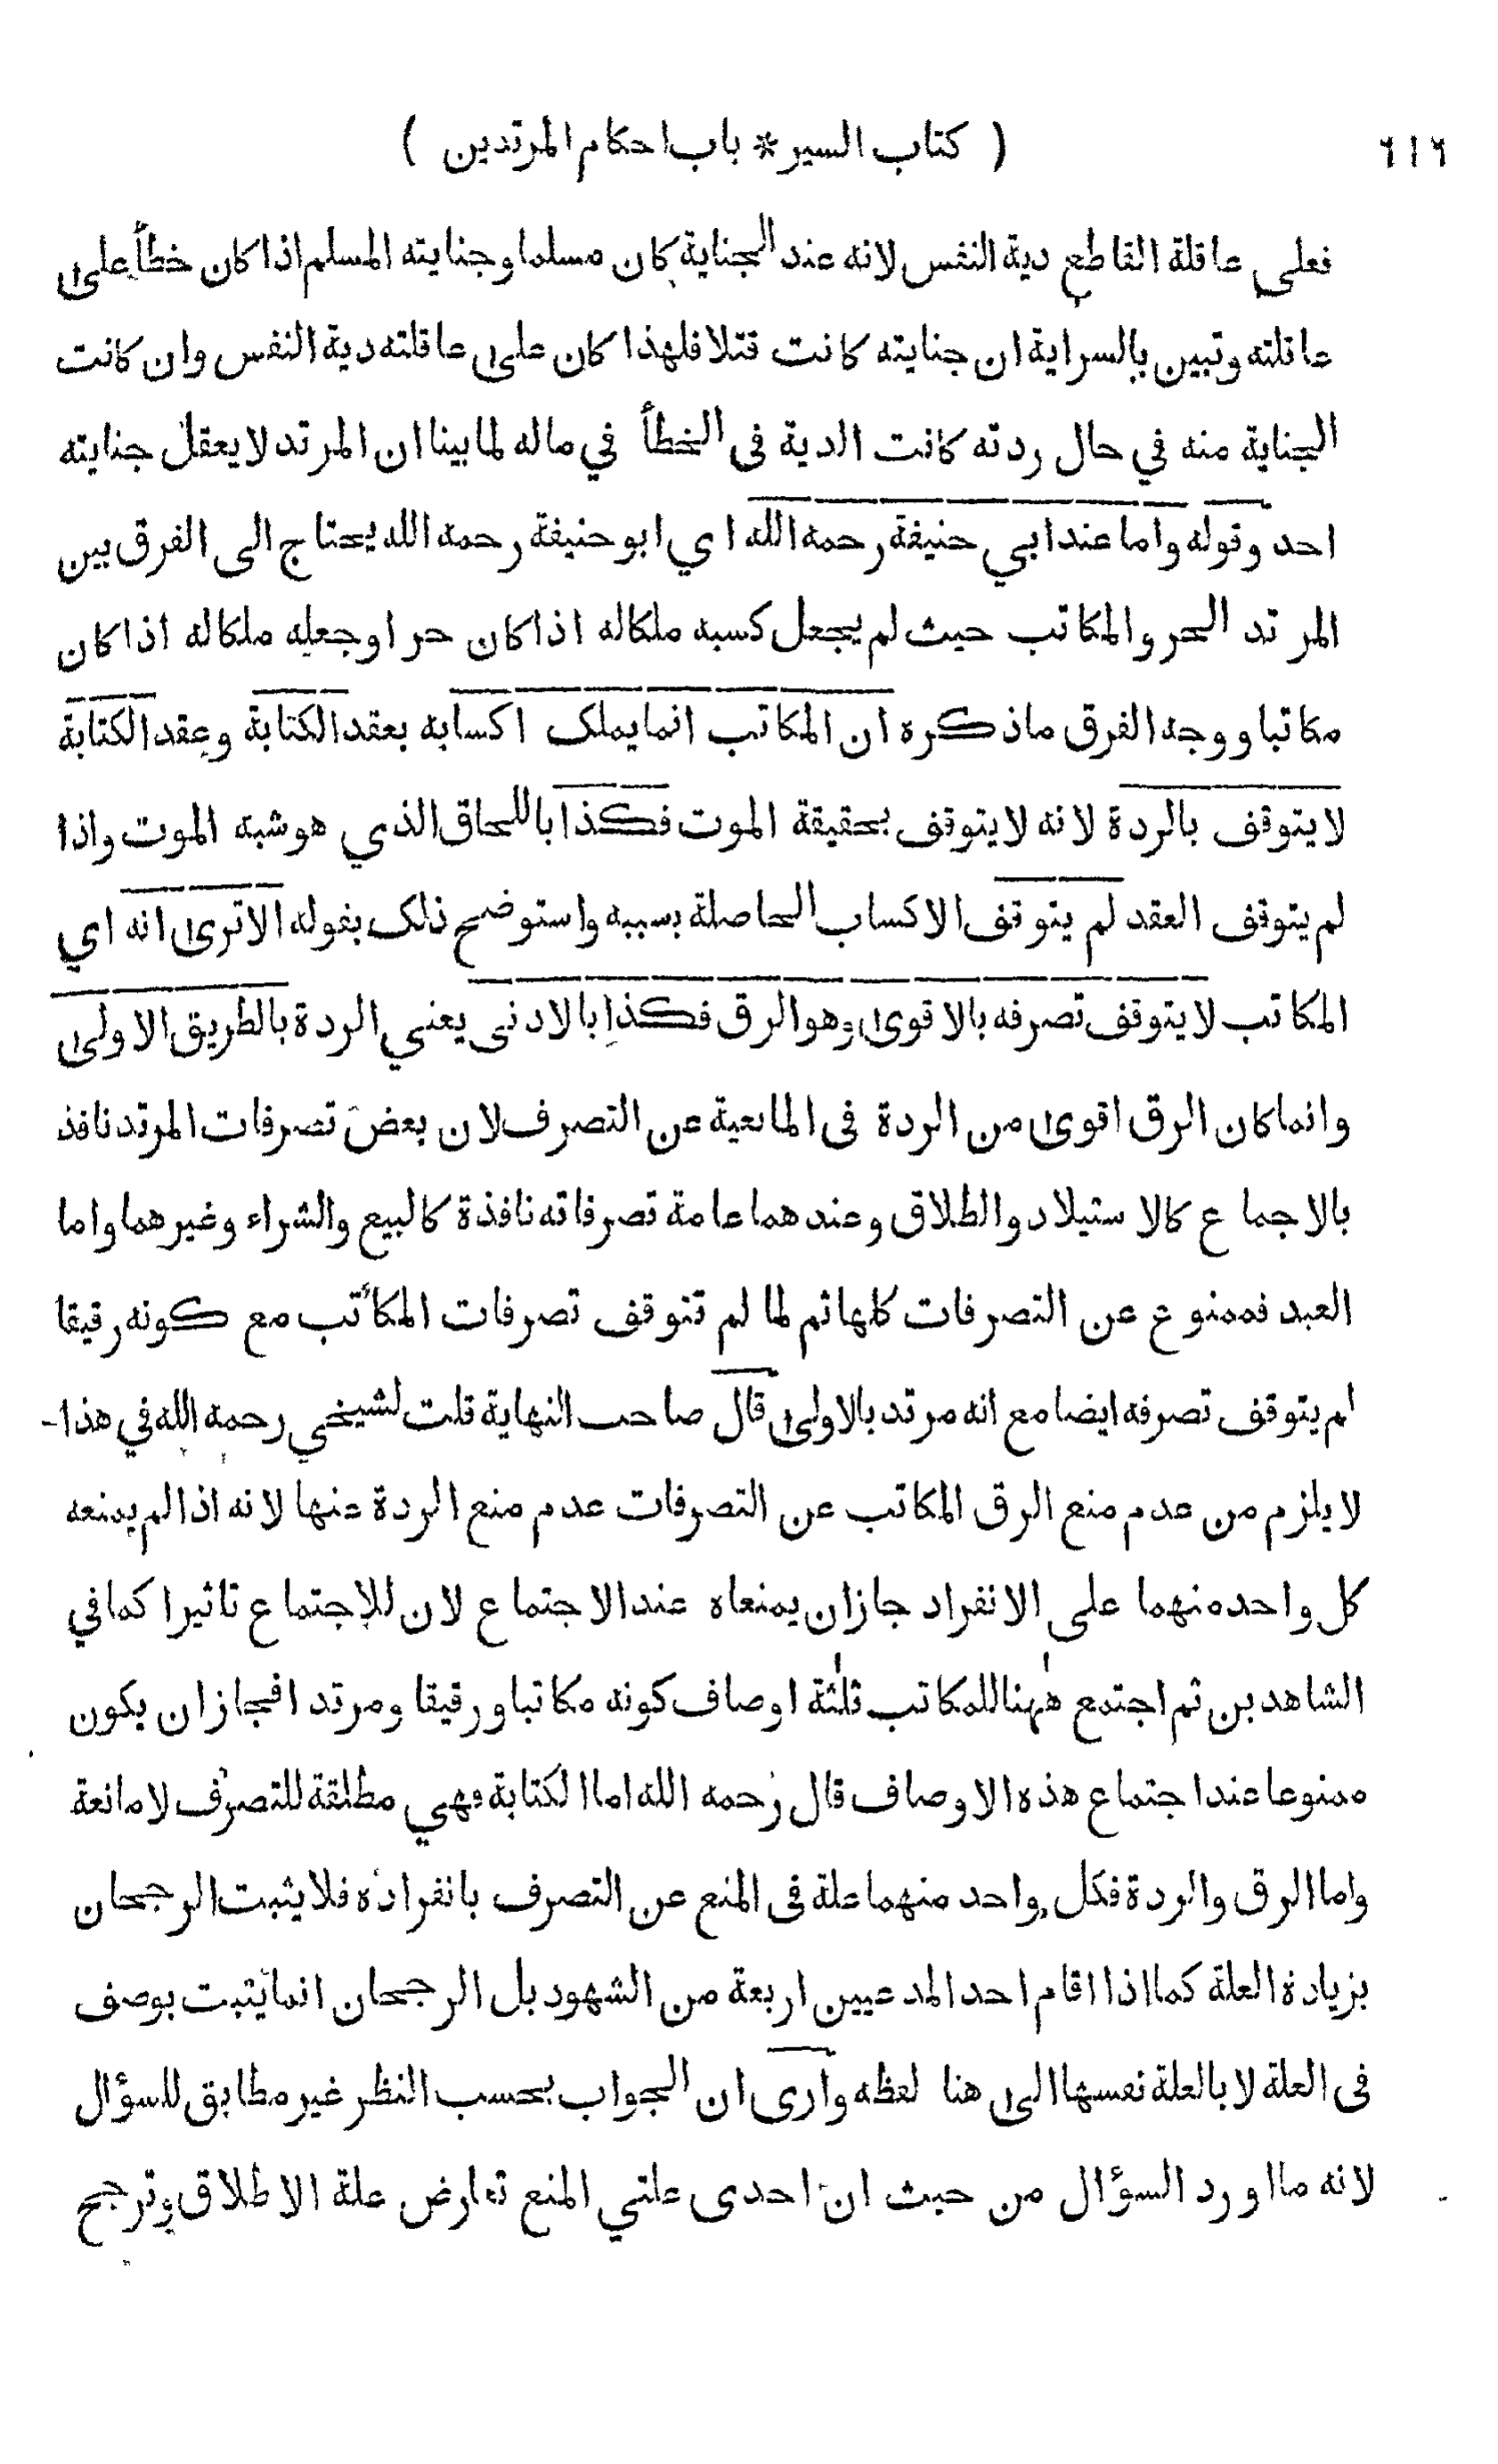 ( كتاب السير * باب احكام المرتدين ) ٦١٦
فعلى عاقلة القاطع دية النفس لانه عند الجناية كان مسلما وجنايته المسلم اذا كان خطأ على
عاقلته وتبين بالسراية ان جنايته كانت قتلا فلهذا كان على عاقلته دية النفس وان كانت
الجناية منه في حال ردته كانت الدية فى الخطأ في ماله لما بينا ان المرتد لا يعقل جنايته
احد وقوله واما عند ابي حنيفة رحمه الله اي ابو حنيفة رحمه الله يحتاج الى الفرق بين
المرتد الحر والمكاتب حيث لم يجعل كسبه ملكا له اذا كان حرا وجعله ملكا له اذا كان
مكاتبا ووجه الفرق ما ذكره ان المكاتب انما يملك اكسابه بعقد الكتابة وعقد الكتابة
لا يتوقف بالردة لانه لا يتوقف بحقيقة الموت فكذا باللحاق الذي هو شبه الموت واذا
لم يتوقف العقد لم يتوقف الاكساب الحاصلة بسببه واستوضح ذلك بقوله الا ترى انه اي
المكاتب لا يتوقف تصرفه بالاقوى وهو الرق فكذا بالادنى يعني الردة بالطريق الاولى
وانما كان الرق اقوى من الردة فى المانعية عن التصرف لان بعض تصرفات المرتد نافذ
بالاجماع كالاستيلاد والطلاق وعندهما عامة تصرفاته نافذة كالبيع والشراء وغيرهما واما
العبد فممنوع عن التصرفات كلها ثم لما لم تتوقف تصرفات المكاتب مع كونه رقيقا
لم يتوقف تصرفه ايضا مع انه مرتد بالاولى قال صاحب النهاية قلت لشيخي رحمه الله في هذا
لا يلزم من عدم منع الرق المكاتب عن التصرفات عدم منع الردة عنها لانه اذا لم يمنعه
كل واحد منهما على الانفراد جاز ان يمنعاه عند الاجتماع لان للاجتماع تاثيرا كما في
الشاهدين ثم اجتمع ههنا للمكاتب ثلثة اوصاف كونه مكاتبا ورقيقا ومرتدا فجاز ان يكون
ممنوعا عند اجتماع هذه الاوصاف قال رحمه الله اما الكتابة فهي مطلقة للتصرف لا مانعة
واما الرق والردة فكل واحد منهما علة فى المنع عن التصرف بانفراده فلا يثبت الرجحان
بزيادة العلة كما اذا اقام احد المدعيين اربعة من الشهود بل الرجحان انما يثبت بوصف
فى العلة لا بالعلة نفسها الى هنا لفظه وارى ان الجواب بحسب النظر غير مطابق للسؤال
لانه ما اورد السؤال من حيث ان احدى علتي المنع تعارض علة الاطلاق وترجح